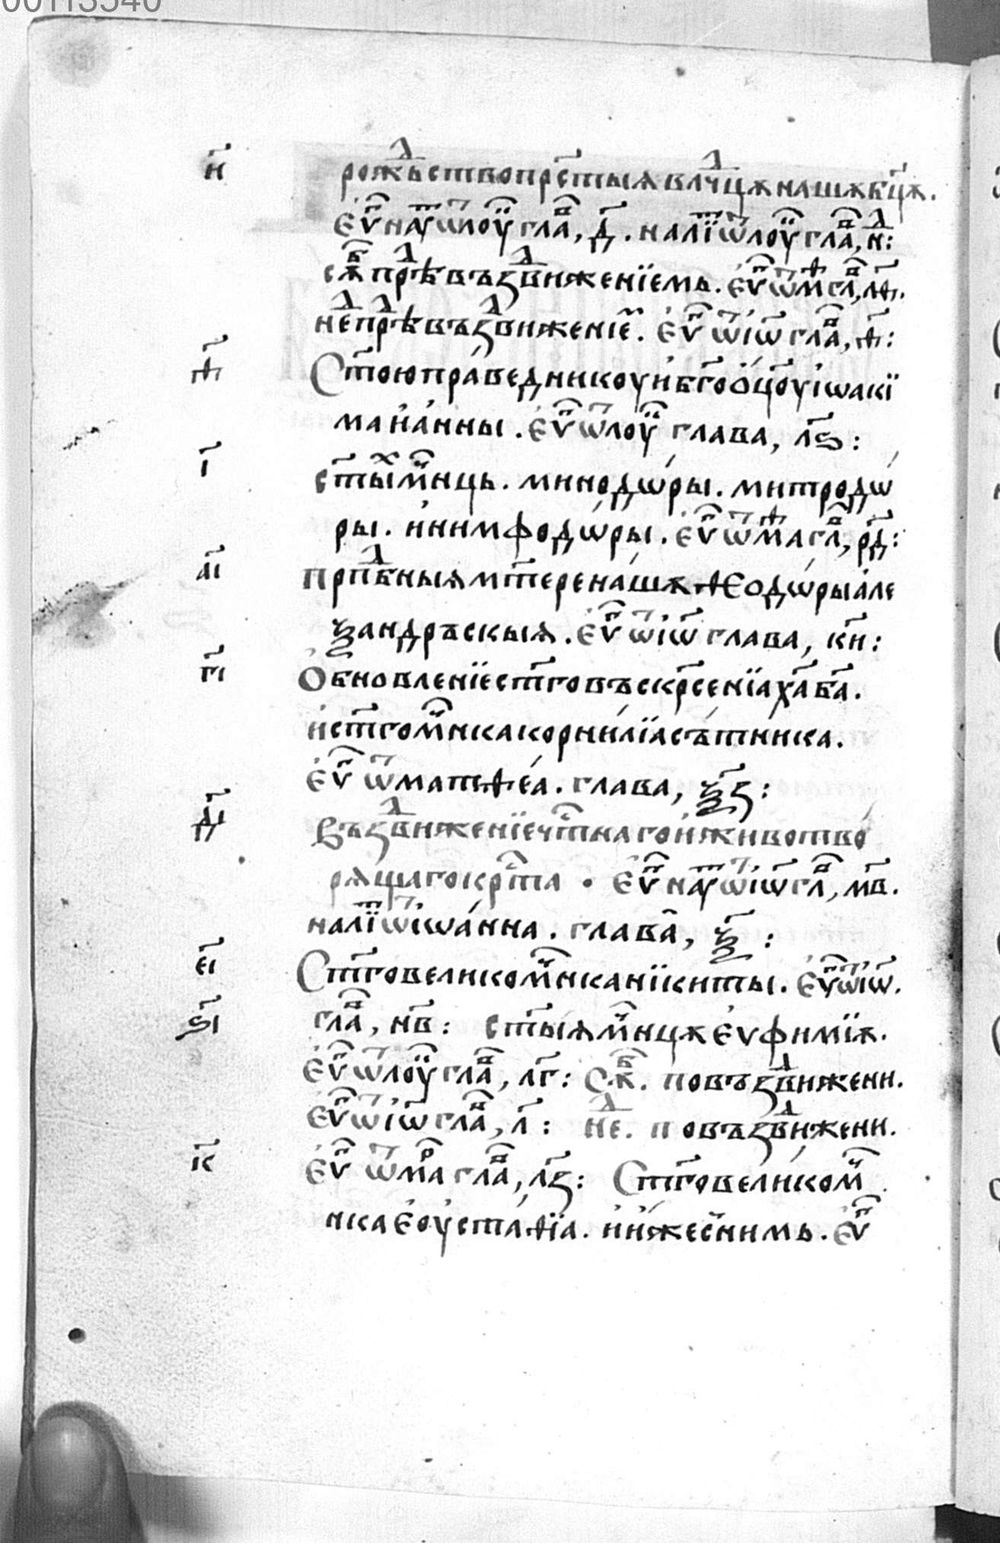 00113540
и҃ рожⷣьство прⷭ҇тыѧ влⷣчцѫ нашѫ бц҃ѫ.
Еѵⷢ҇ на ѹⷮ ѿ лоуⷦ҇ глаⷡ҇, д҃. на лїⷮ ѿ лоуⷦ҇ глаⷡ҇, н҃д:
сѫⷠ҇ прѣⷣ въздвиженїемь. еѵⷢ҇ ѿ мⷴ҇ глⷡ҇, л҃ѳ.
неⷣ прѣⷣ въздвиженїеⷨ. еѵⷢ҇ ѿ іѡ глаⷡ҇, ѳ҃:
ѳ҃ Ст҃ою праведникоу и бг҃оѡц҃оу іѡакї
ма и анны. еѵⷢ҇ ѿ лоуⷦ҇ глава, л҃ѕ:
і҃ ст҃ыⷯ мч҃ниць. минодѡры. митродѡ
ры. и нимфодѡры. еѵⷢ҇ ѿ маⷴ҇ глⷡ҇, р҃д:
а҃і прпⷣбныѧ мт҃ере нашѫ ѳеодѡры але
ѯандръскыѧ. еѵⷢ҇ ѿ іѡ глава, к҃и:
г҃і Обновленїе ст҃го въскрⷭ҇сенїа ха҃ ба҃.
и ст҃го мч҃ника корнилїа сътника.
еѵⷢ҇ ѿ матѳеа. глава, ѯ҃з:
д҃і Въздвиженїе чⷭ҇тнаго и животво
рѧщаго крⷭ҇та. еѵⷢ҇ на ѹⷮ ѿ іѡ глⷡ҇, м҃в.
на лїⷮ ѿ іѡанна. глава, ѯ҃:
е҃і Ст҃го великомч҃ника нїкиты. еѵⷢ҇ ѿ іѡ.
ѕ҃і глаⷡ҇, н҃в: ст҃ыїѧ мч҃ницѫ еѵфимїѫ.
еѵⷢ҇ ѿ лоуⷦ҇ глаⷡ҇, л҃г: Сѫⷠ҇. по въздвижени.
еѵⷢ҇ ѿ іѡ глаⷡ҇, л҃: неⷣ. по въздвижени.
к҃ еѵⷢ҇ ѿ мрⷦ҇а глаⷡ҇, л҃з: Ст҃го великомч҃
ника еоустаѳїа. и иже с нимь. еѵⷢ҇